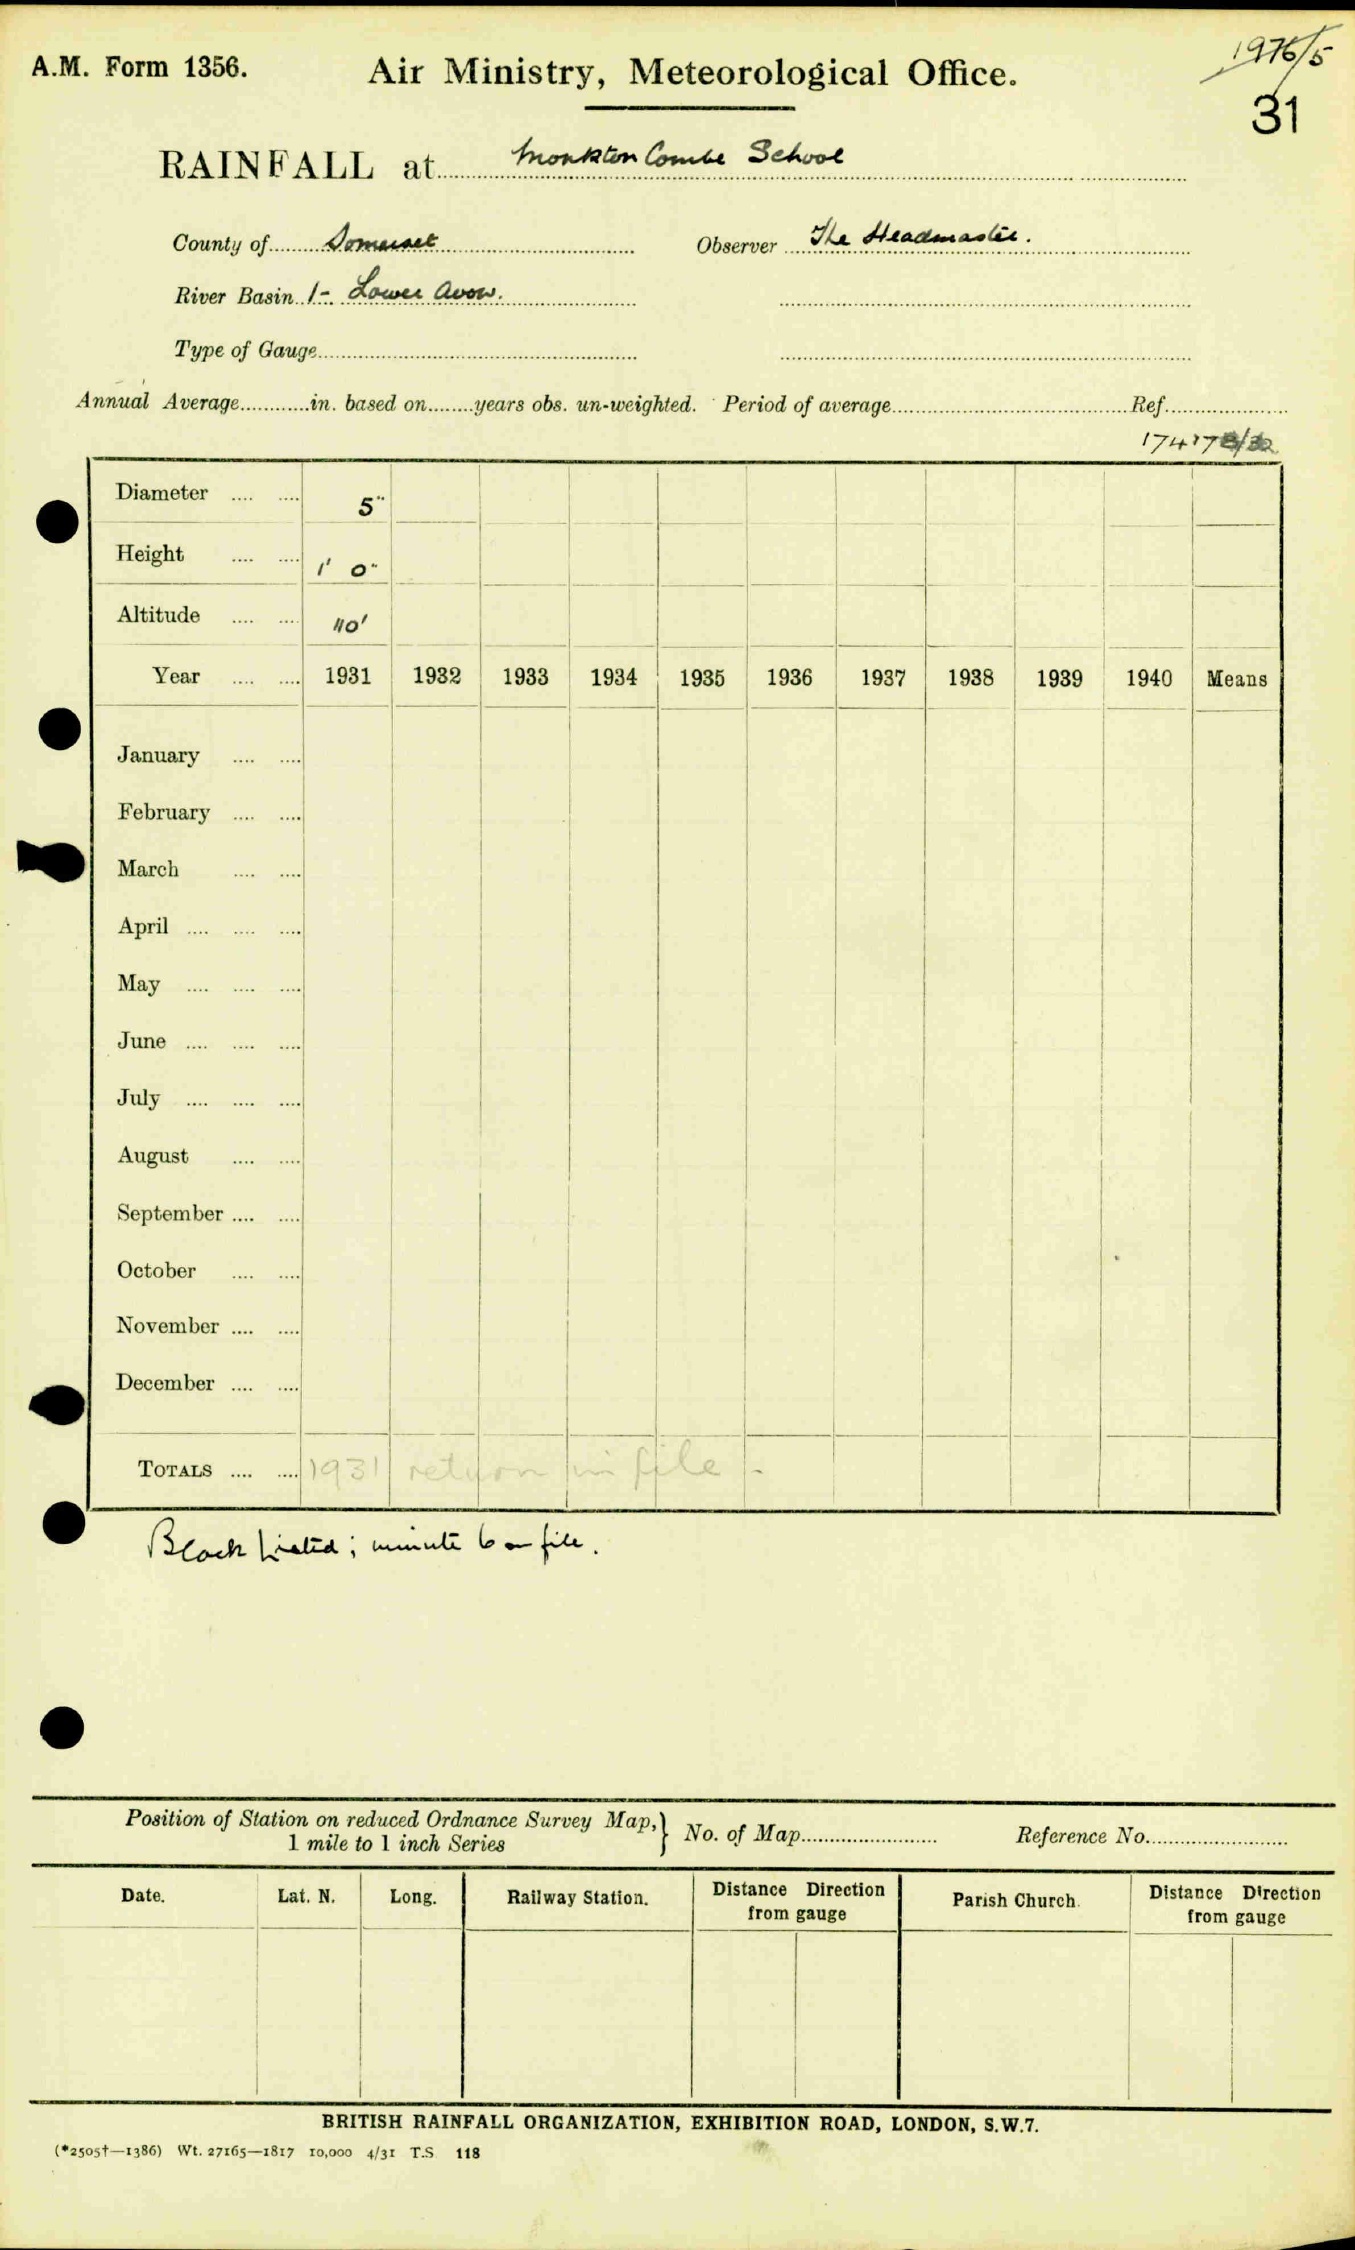 A.M. Form 1356.
Air Ministry, Meteorological Office.
1976/5
31
RAINFALL at Monkton Combe School
County of Somerset Observer The Headmaster.
River Basin 1- Lower Avon.
Type of Gauge
Annual Average in. based on years obs. un-weighted. Period of average Ref.
Diameter 5"
Height 1' 0"
Altitude 110'
Year 1931 1932 1933 1934 1935 1936 1937 1938 1939 1940 Means
January
February
March
April
May
June
July
August
September
October
November
December
TOTALS 1931 return in file -
Black Listed ; minute 6 on file.
Position of Station on reduced Ordnance Survey Map, } No. of Map Reference No.
1 mile to 1 inch Series
Date. Lat. N. Long. Railway Station. Distance Direction from gauge Parish Church. Distance Direction from gauge
BRITISH RAINFALL ORGANIZATION, EXHIBITION ROAD, LONDON, S.W.7.
(*2505†—1386) Wt. 27165—1817 10,000 4/31 T.S 118